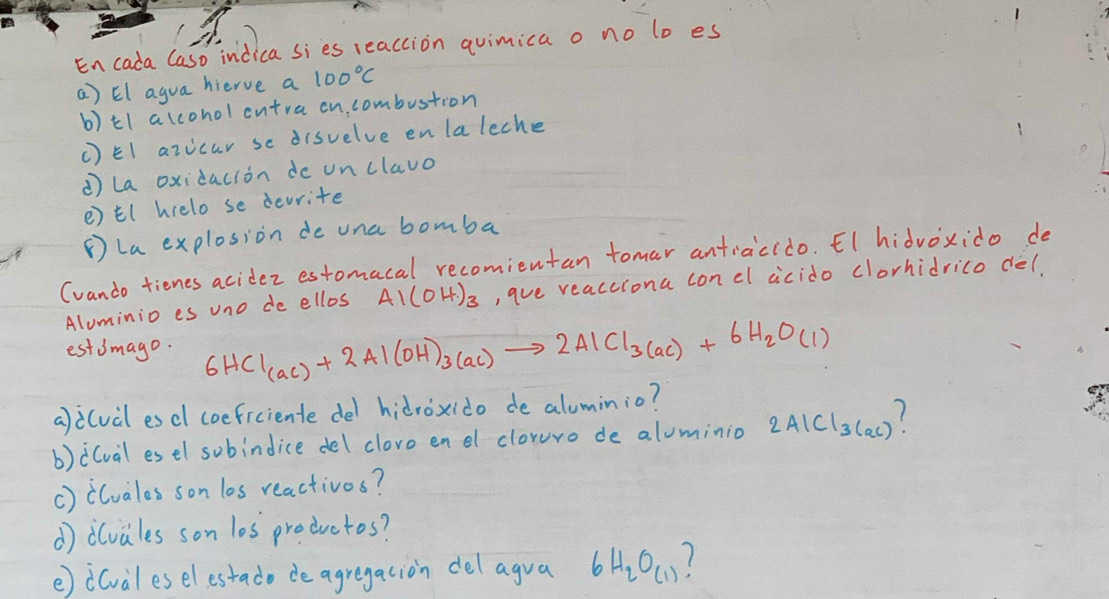 En cada caso indica si es reacción química o no lo es
a) El agua hierve a 100°C
b) El alcohol entra en combustion
c) El azúcar se disuelve en la leche
d) La oxidación de un clavo
e) El hielo se derrite
f) La explosión de una bomba
Cuando tienes acidez estomacal recomientan tomar antiácido. El hidróxido de
Aluminio es uno de ellos Al(OH)₃, que reacciona con el ácido clorhidrico del.
estómago.
6HCl(ac) + 2Al(OH)₃(ac) → 2AlCl₃(ac) + 6H₂O(l)
a) ¿Cuál es el coeficiente del hidróxido de aluminio?
b) ¿Cuál es el subíndice del cloro en el cloruro de aluminio 2AlCl₃(ac)?
c) ¿Cuáles son los reactivos?
d) ¿Cuáles son los productos?
e) ¿Cuál es el estado de agregación del agua 6H₂O(l)?